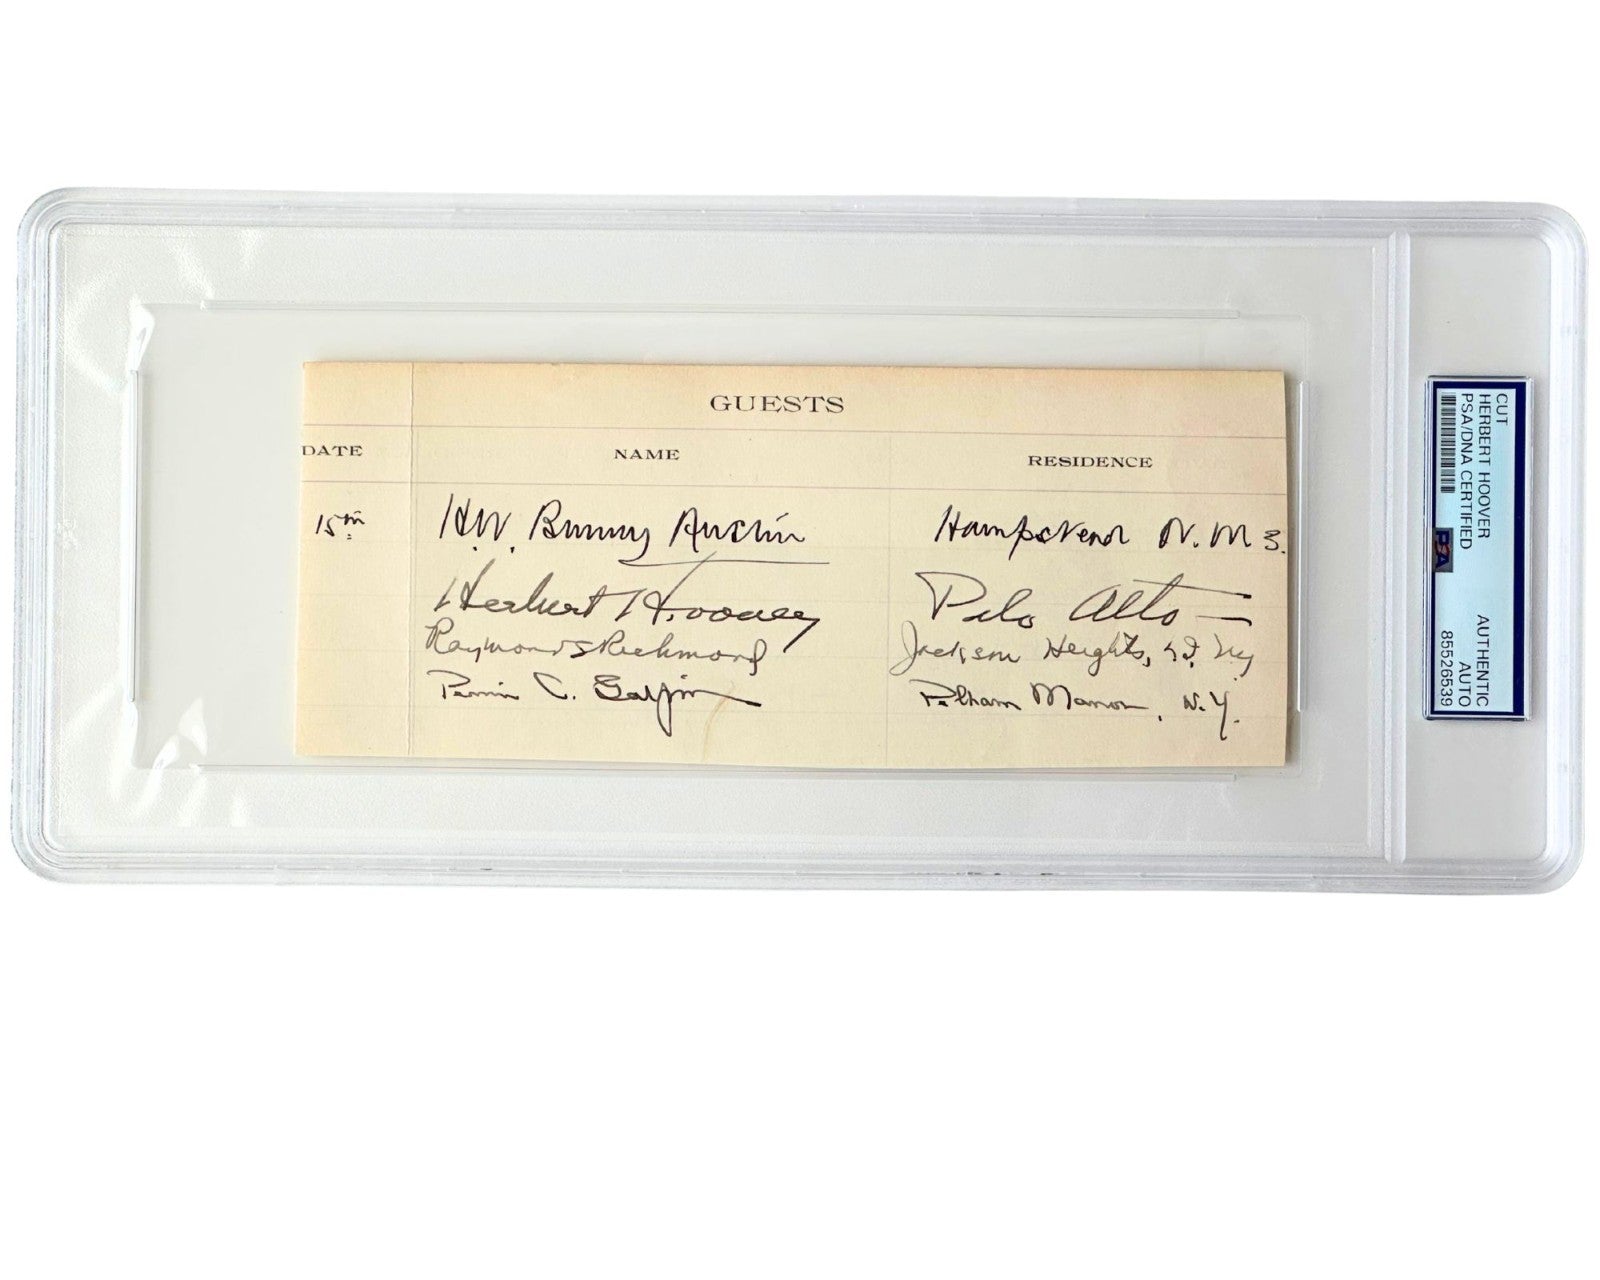 GUESTS
DATE NAME RESIDENCE
15th H.W. Bunny Austin Hampstead N.W. 3.
Herbert Hoover Palo Alto
Raymond Richmond Jackson Heights, N.Y.
C. Pelham Manor, N.Y.
CUT
HERBERT HOOVER
PSA/DNA CERTIFIED
PSA
AUTHENTIC
AUTO
85526539